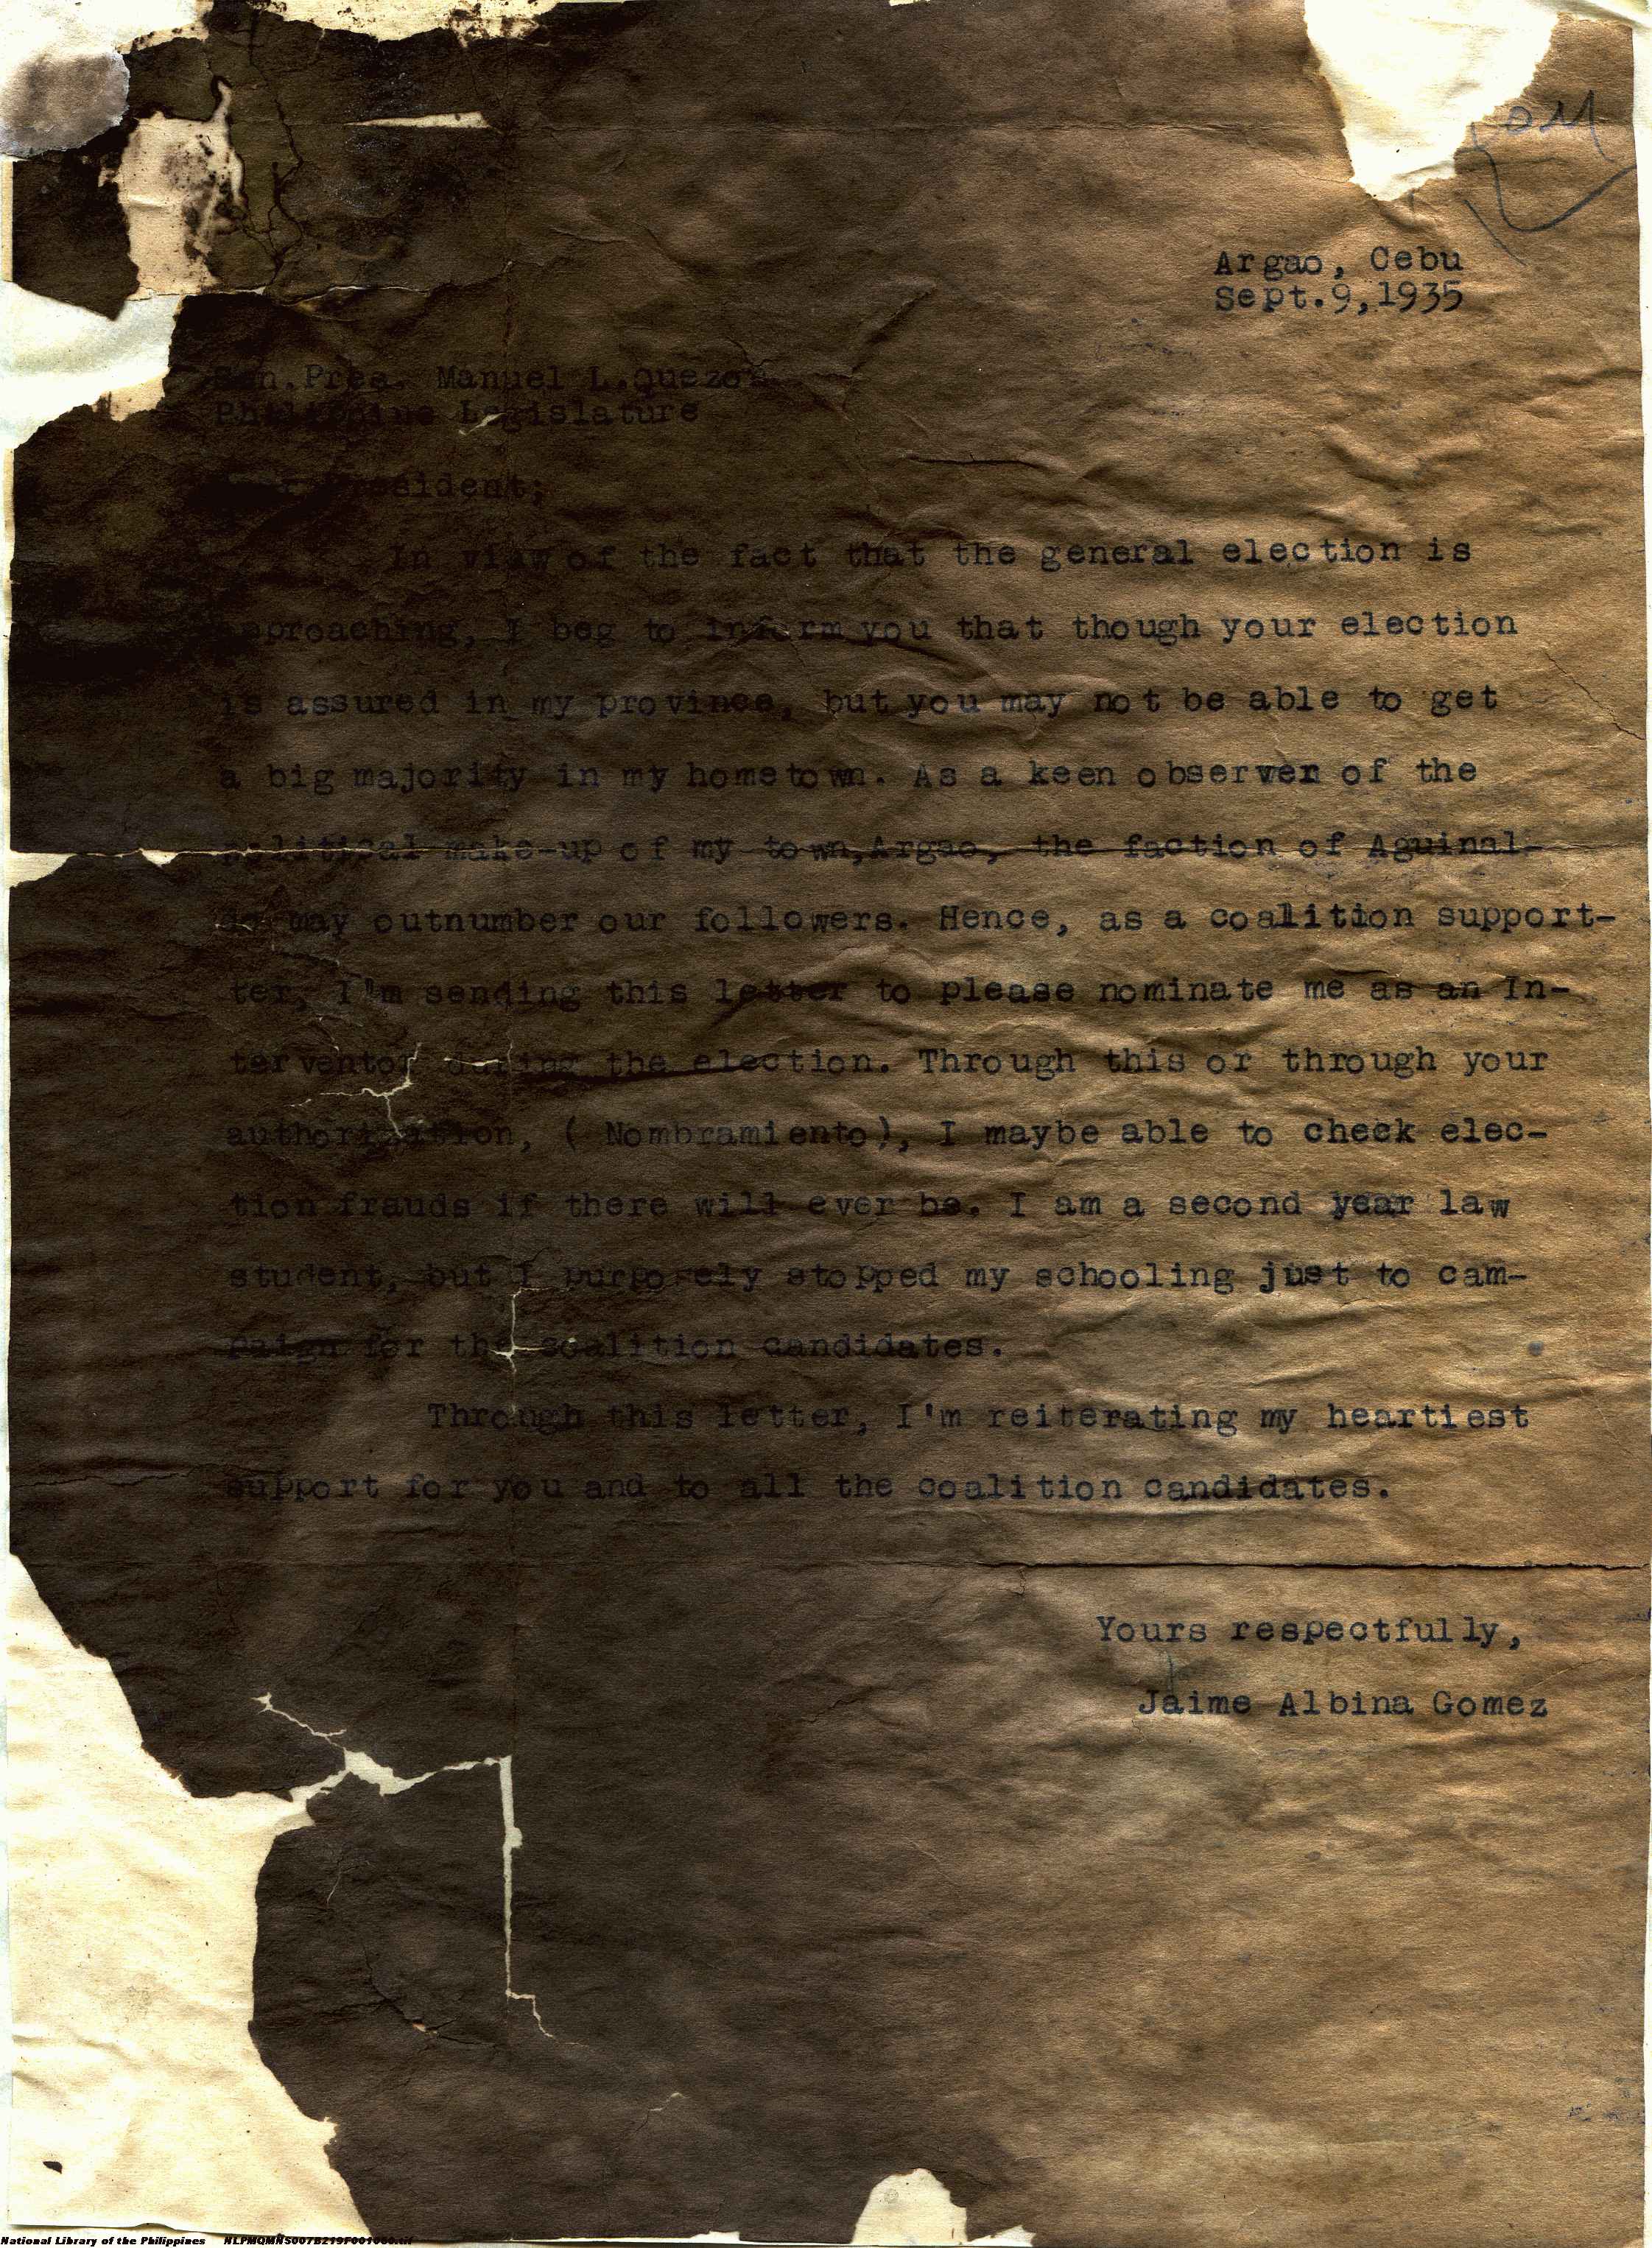 Argao, Cebu
Sept.9,1935
Sen.Pres. Manuel L.Quezon
Philippine Legislature
Dear President;
In view of the fact that the general election is
approaching, I beg to inform you that though your election
is assured in my province, but you may not be able to get
a big majority in my hometown. As a keen observer of the
political make-up of my town,Argao, the faction of Aguinal-
do may outnumber our followers. Hence, as a coalition support-
ter, I'm sending this letter to please nominate me as an In-
terventor during the election. Through this or through your
authorization, ( Nombramiento), I maybe able to check elec-
tion frauds if there will ever be. I am a second year law
student, but I purposely stopped my schooling just to cam-
paign for the coalition candidates.
Through this letter, I'm reiterating my heartiest
support for you and to all the coalition candidates.
Yours respectfully,
Jaime Albina Gomez
National Library of the Philippines